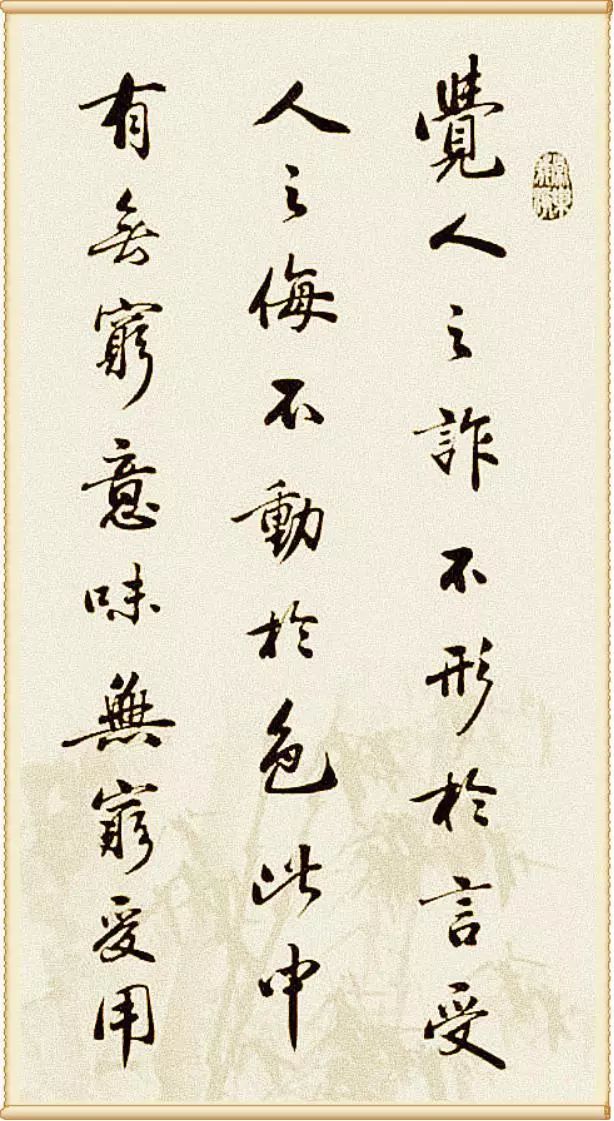 覺人之詐不形於言受
人之侮不動於色此中
有無窮意味無窮受用